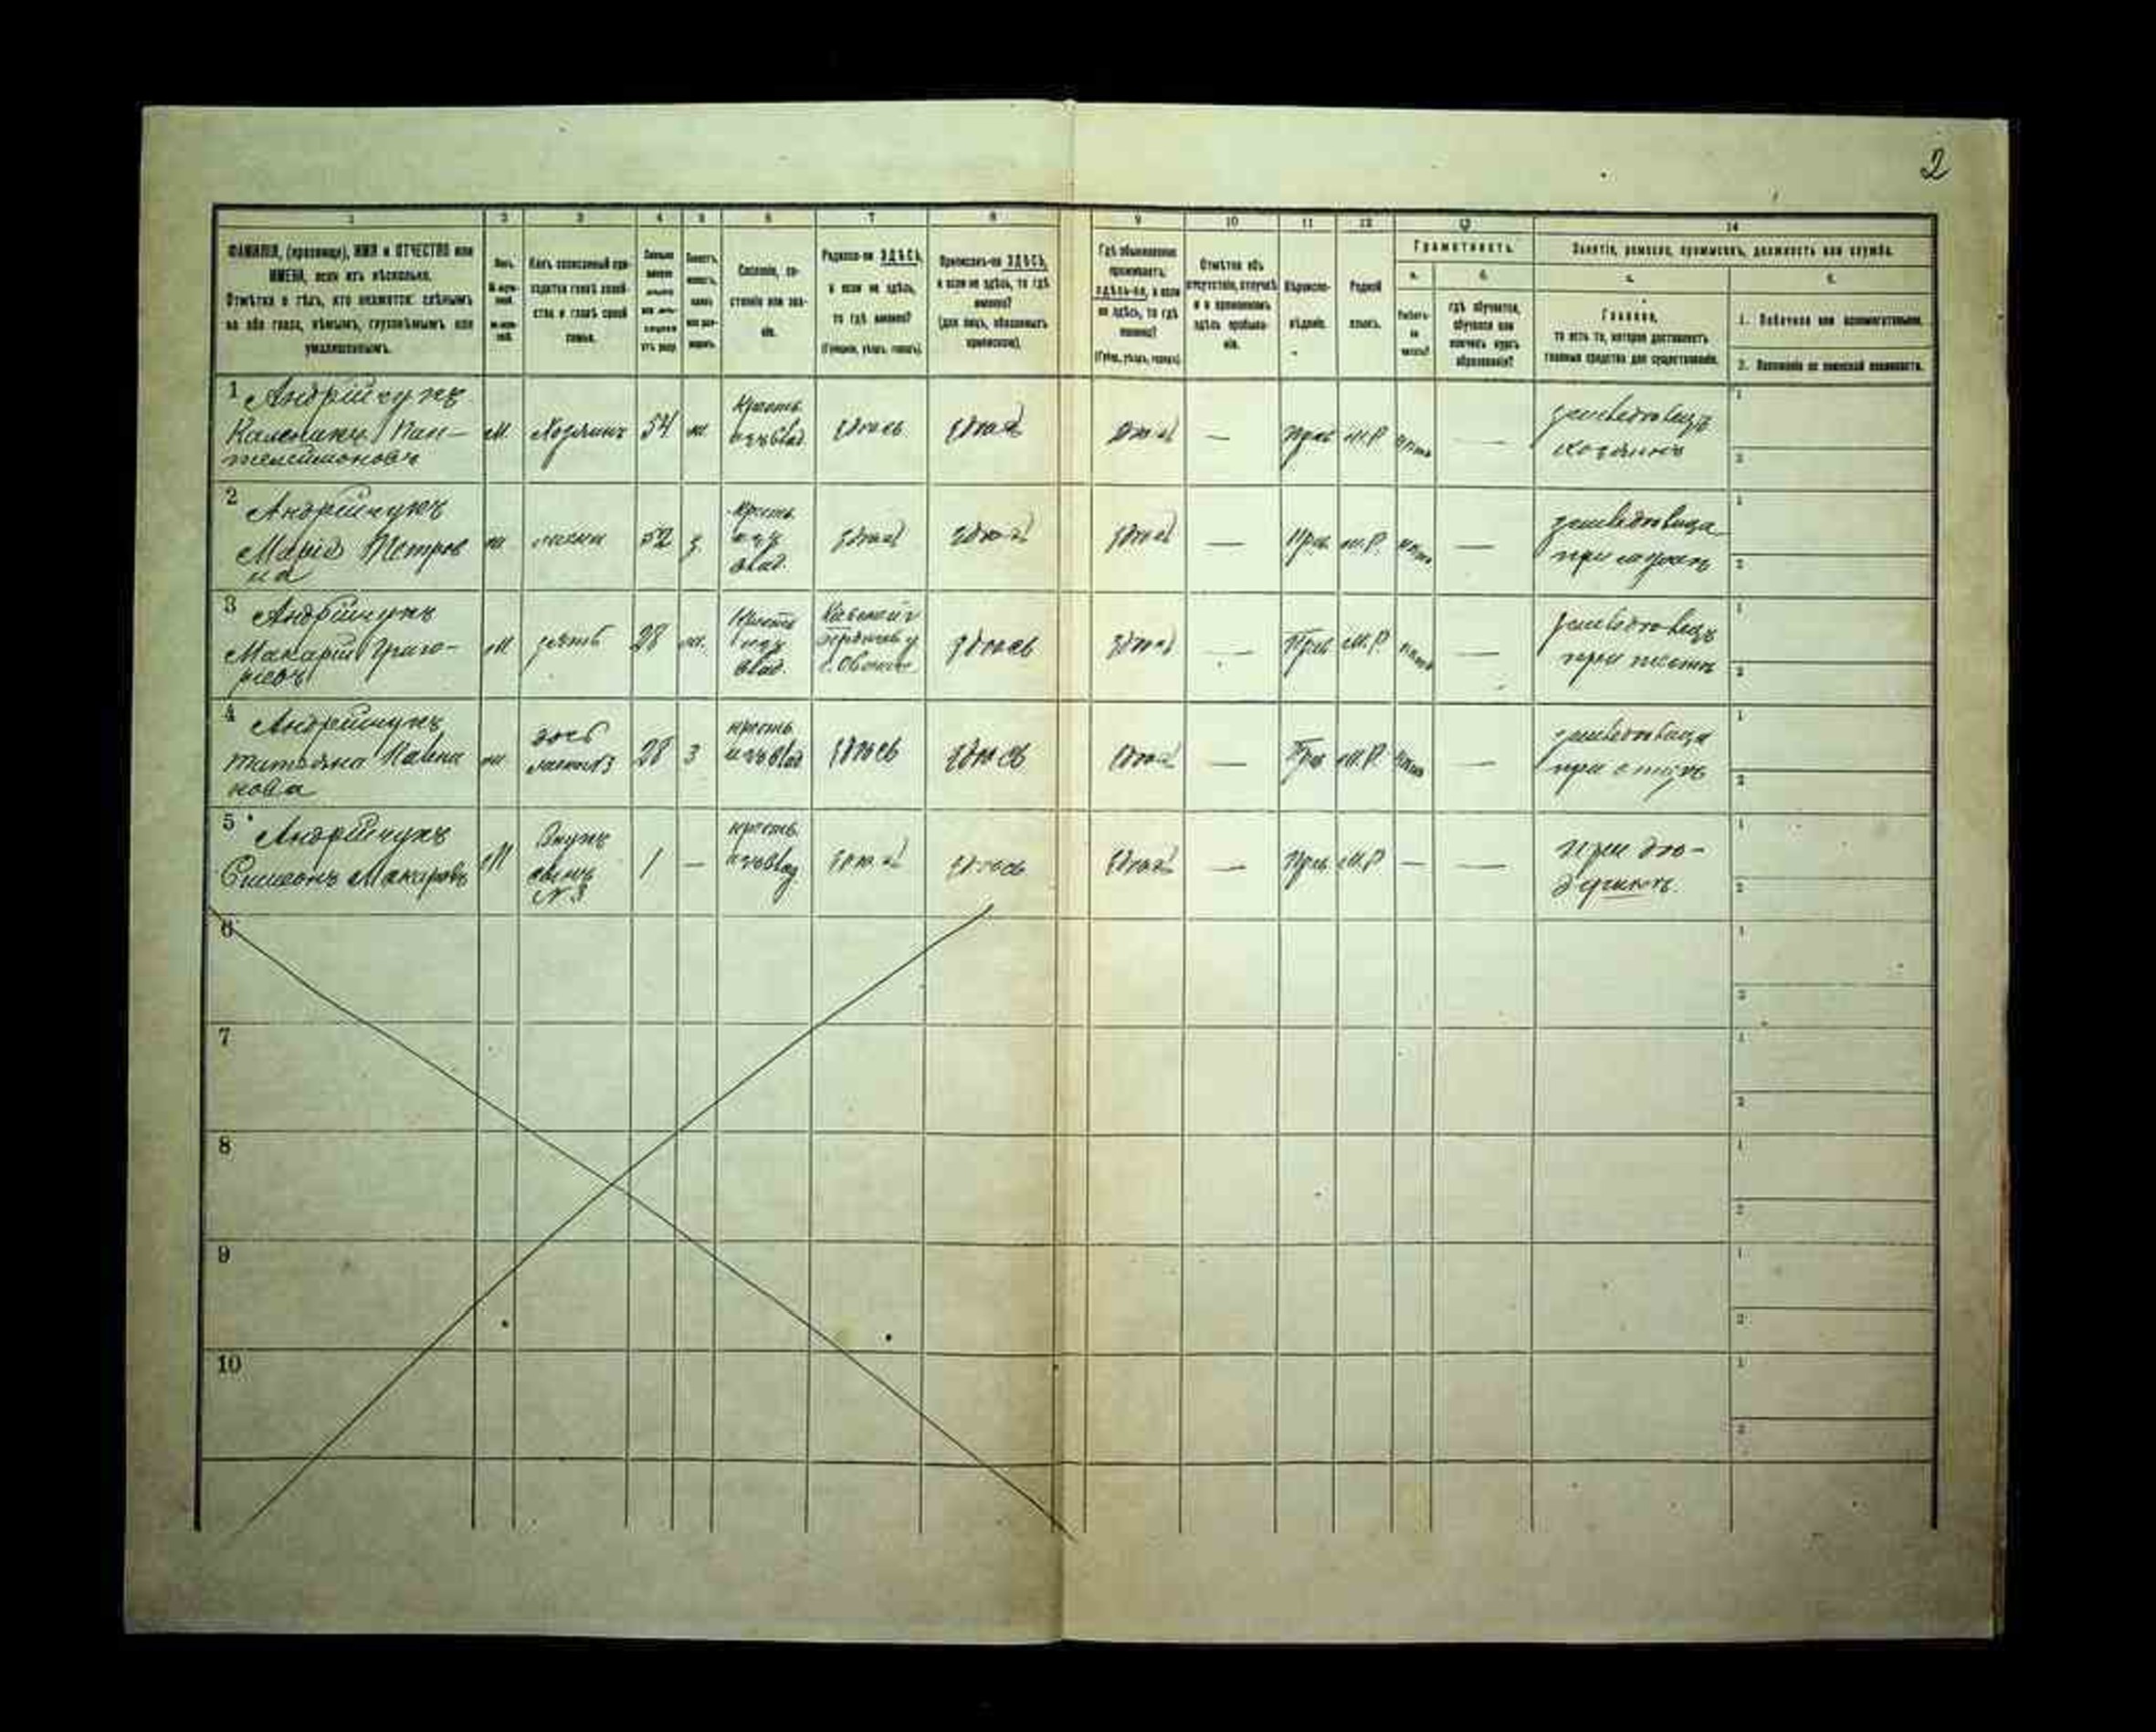 2
1 2 3 4 5 6 7 8 9 10 11 12 13 14
ФАМИЛІЯ, (прозвище), ИМЯ и ОТЧЕСТВО или
ИМЕНА, если ихъ нѣсколько.
Отмѣтка о тѣхъ, кто окажется: слѣпымъ
на оба глаза, нѣмымъ, глухонѣмымъ или
умалишеннымъ.
Полъ.
Какъ записанный при-
ходится главѣ хозяй-
ства и главѣ своей
семьи.
Сословіе, со-
стояніе или зва-
ніе.
Родился-ли ЗДѢСЬ,
а если не здѣсь,
то гдѣ именно?
(Губернія, уѣздъ, городъ).
Приписанъ-ли ЗДѢСЬ,
а если не здѣсь, то гдѣ
именно?
(для лицъ, обязанныхъ
припискою).
Гдѣ обыкновенно
проживаетъ:
здѣсь-ли, а если
не здѣсь, то гдѣ
именно?
(Губ., уѣздъ, городъ).
Отмѣтка объ
отсутствіи, отлучкѣ
и о временномъ
здѣсь пребыва-
ніи.
Вѣроиспо-
вѣданіе.
Родной
языкъ.
Грамотность.
а. б.
Умѣетъ-
ли
читать?
гдѣ обучается,
обучался или
кончилъ курсъ
образованія?
Занятіе, ремесло, промыселъ, должность или служба.
а. б.
Главное,
то есть то, которое доставляетъ
главныя средства для существованія.
1. Побочное или вспомогательное.
2. Положеніе по воинской повинности.
1 Андрійчукъ
Каленикъ Пан-
телеймоновъ
М Хозяинъ 54 ж
Крестъ.
изъ влад.
здѣсь здѣсь здѣсь — Прав М.Р. —
земледѣлецъ
хозяинъ
2 Андрійчукъ
Марія Петров
на
ж жена 52 з
Крест.
изъ
влад.
здѣсь здѣсь здѣсь — Прав. М.Р. —
земледѣлица
при мужѣ
3 Андрійчукъ
Макарій Григо-
ріевъ
М зять 28 ж.
Крест
изъ
влад.
Кіевской г
здѣсь здѣсь — Прав М.Р —
земледѣлецъ
при тестѣ
4 Андрійчукъ
Татьяна Калени
кова
ж
дочь
жена №3
28 з
крест.
изъ влад
здѣсь здѣсь здѣсь — Прав М.Р. —
земледѣлица
при отцѣ
5 Андрійчукъ
Симеонъ Макаровъ
М
Внукъ
сынъ
№ 3
1 —
крест.
изъ влад
здѣсь здѣсь здѣсь — Прав М.Р — —
при дѣ-
душкѣ.
6
7
8
9
10